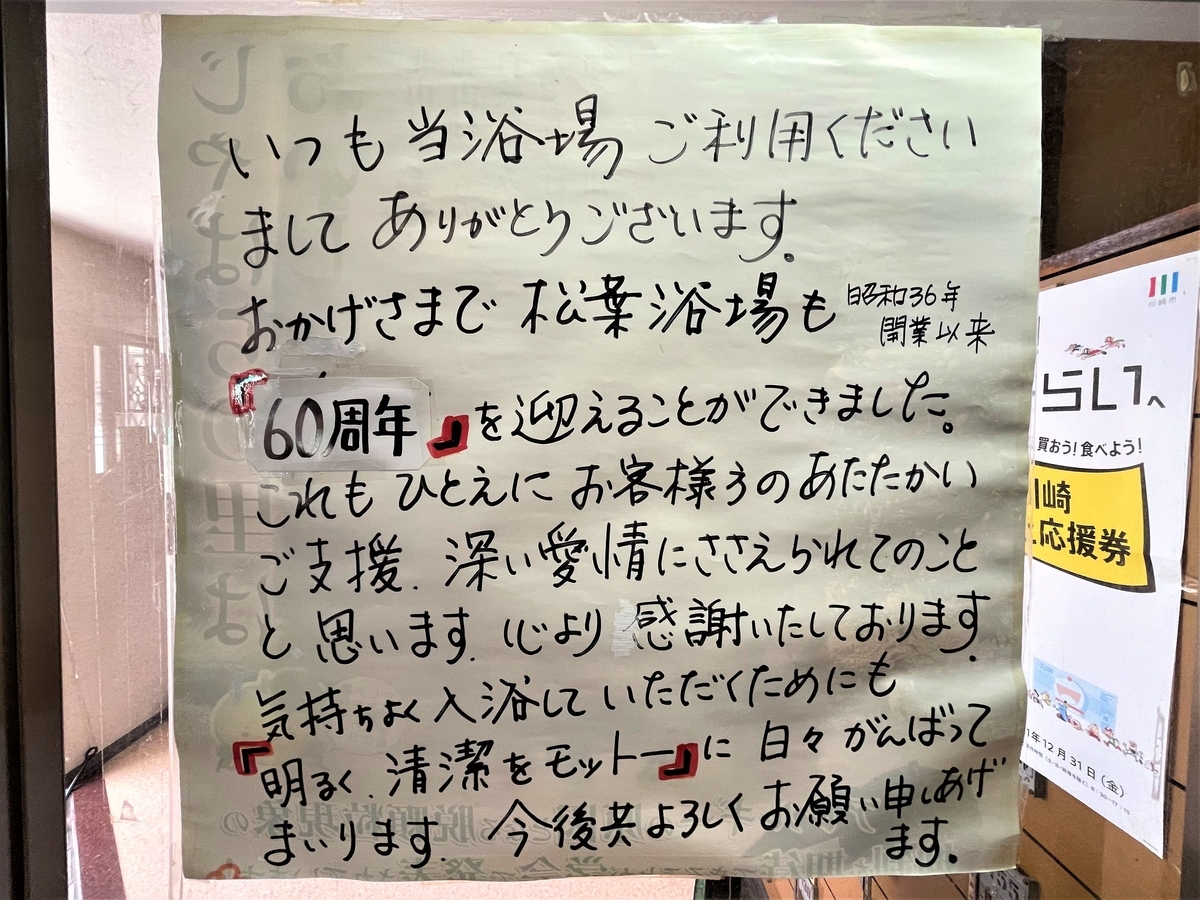 いつも当浴場ご利用ください
ましてありがとうございます。
おかげさまで松葉浴場も
昭和36年
開業以来
『60周年』を迎えることができました。
これもひとえにお客様方のあたたかい
ご支援、深い愛情にささえられてのこと
と思います。心より感謝いたしております。
気持ちよく入浴していただくためにも
『明るく、清潔をモットー』に日々がんばって
まいります。今後共よろしくお願い申しあげ
ます。
川崎市
らしいへ
買おう!食べよう!
川崎
応援券
年12月31日(金)